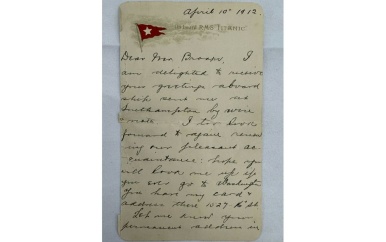 April 10th 1912
On board R.M.S. "TITANIC"
Dear Mrs. I
am delighted to receive
your greetings aboard
ship sent me via
Southampton by wire
I too look
forward to again renew
ing our pleasant ac
quaintance: hope you
will look me up if
you ever go to Washington
You have my card &
address there 1527
Let me know your
permanent address in